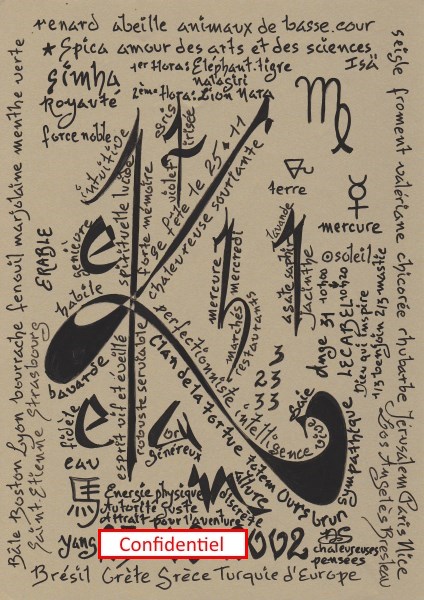 renard abeille animaux de basse.cour
★ Spica amour des arts et des sciences
1er Hora: Elephant.tigre
Isä
nalagiri
2ème Hora: Lion Nara
simha
Royauté
force noble
intuitive
gris
irisée
violet
se fête le 25.11
chaleureuse souriante
spirituelle lucide
forte mémoire
terre
mercure
soleil
lavande
agate saphir
jacinthe
genièvre
ERABLE
habile
mercure
mercredi
marchés
restaurants
ange 31 10h00
LECABEL 10h20
Dieu qui inspire
1/3 benjoin 2/3 mastic
bavarde
perfectionniste
Clan de la tortue totem Ours brun
3
23
33
intelligence
soie
sympathique
fidèle
eau
esprit vif et éveillé
robuste serviable
or
généreux
discrète
馬
Energie physique
Autorité juste
Attrait pour l'aventure
yang
Confidentiel
002
chaleureuses
pensées
Brésil Crète Grèce Turquie d'Europe
Bâle Boston Lyon bourrache fenouil marjolaine menthe verte
Saint Etienne Strasbourg
seigle froment valériane chicorée rhubarbe Jérusalem Paris Nice
Los Angelès Breslau